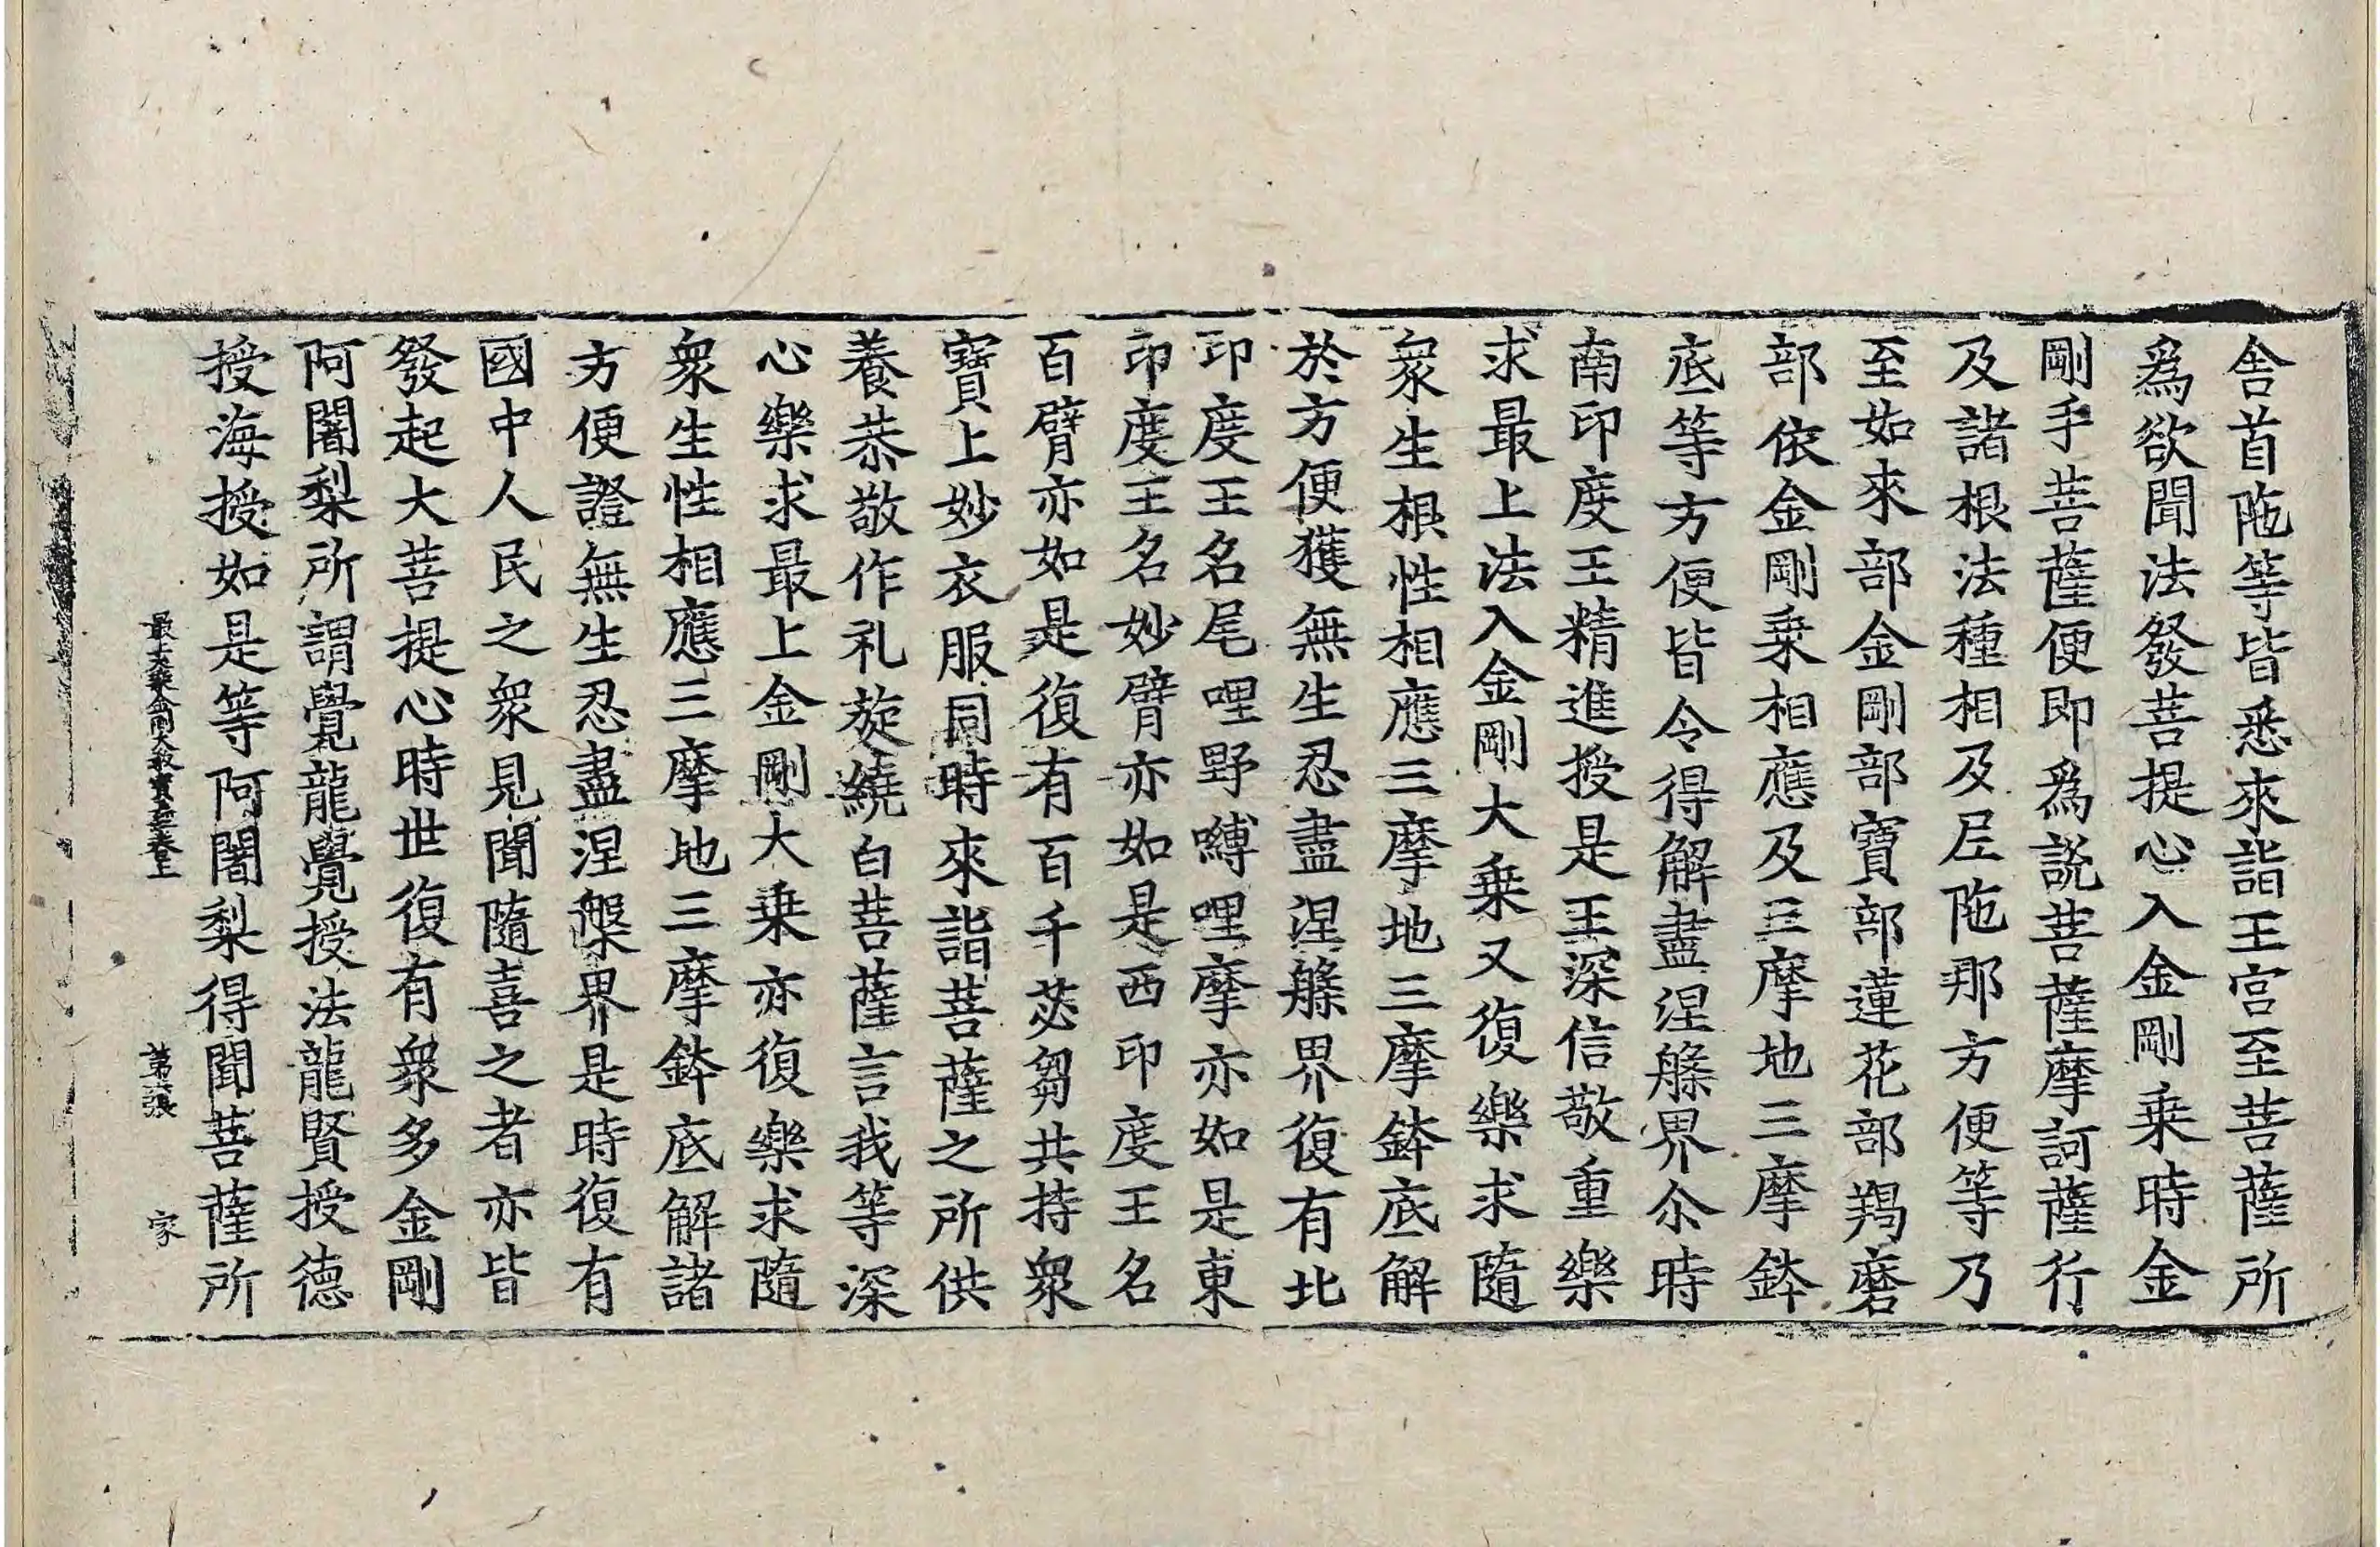 舎首陁等皆悉來詣王宫至菩薩所
爲欲聞法發菩提心入金剛乗時金
剛手菩薩便即爲説菩薩摩訶薩行
及諸根法種相及尼陁那方便等乃
至如來部金剛部寶部蓮花部羯磨
部依金剛乗相應及三摩地三摩鉢
底等方便皆令得解盡涅槃界尒時
南印度王精進授是王深信敬重樂
求最上法入金剛大乗又復樂求隨
衆生根性相應三摩地三摩鉢底解
於方便獲無生忍盡涅槃界復有北
印度王名尾哩野嚩哩摩亦如是東
印度王名妙臂亦如是西印度王名
百臂亦如是復有百千苾芻共持衆
寶上妙衣服同時來詣菩薩之所供
養恭敬作礼旋繞白菩薩言我等深
心樂求最上金剛大乗亦復樂求隨
衆生性相應三摩地三摩鉢底解諸
方便證無生忍盡涅槃界是時復有
國中人民之衆見聞隨喜之者亦皆
發起大菩提心時世復有衆多金剛
阿闍梨所謂覺龍覺授法龍賢授德
授海授如是等阿闍梨得聞菩薩所
最上大乗金剛大教寶王經卷上 第張 家